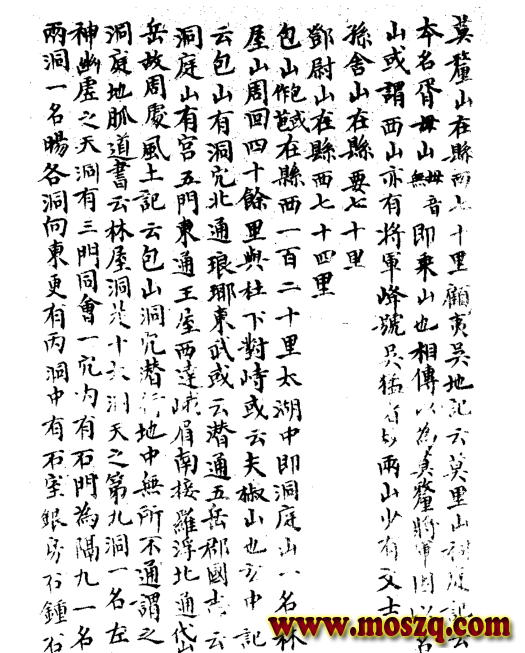 莫釐山在縣西七十里顧夷吳地記云莫里山
本名胥母山母音無即乘山也相傳以為莫釐將軍因以名
山或謂西山亦有將軍峰號吳猛 兩山少有文士
孫舍山在縣西七十里
鄧尉山在縣西七十四里
包山包或作苞在縣西一百二十里太湖中即洞庭山一名林
屋山周回四十餘里與杜下對峙或云夫椒山也 中記
云包山有洞穴北通琅琊東武或云潛通五岳郡國志云
洞庭山有宮五門東通王屋西達峨眉南接羅浮北通岱
岳故周處風土記云包山洞穴潛行地中無所不通謂之
洞庭地脈道書云林屋洞 十大洞天之第九洞一名左
神幽虛之天洞有三門同會一穴內有石門為隔九一名
兩洞一名暘谷洞向東更有丙洞中有石室銀房石鍾石
www.moszq.com